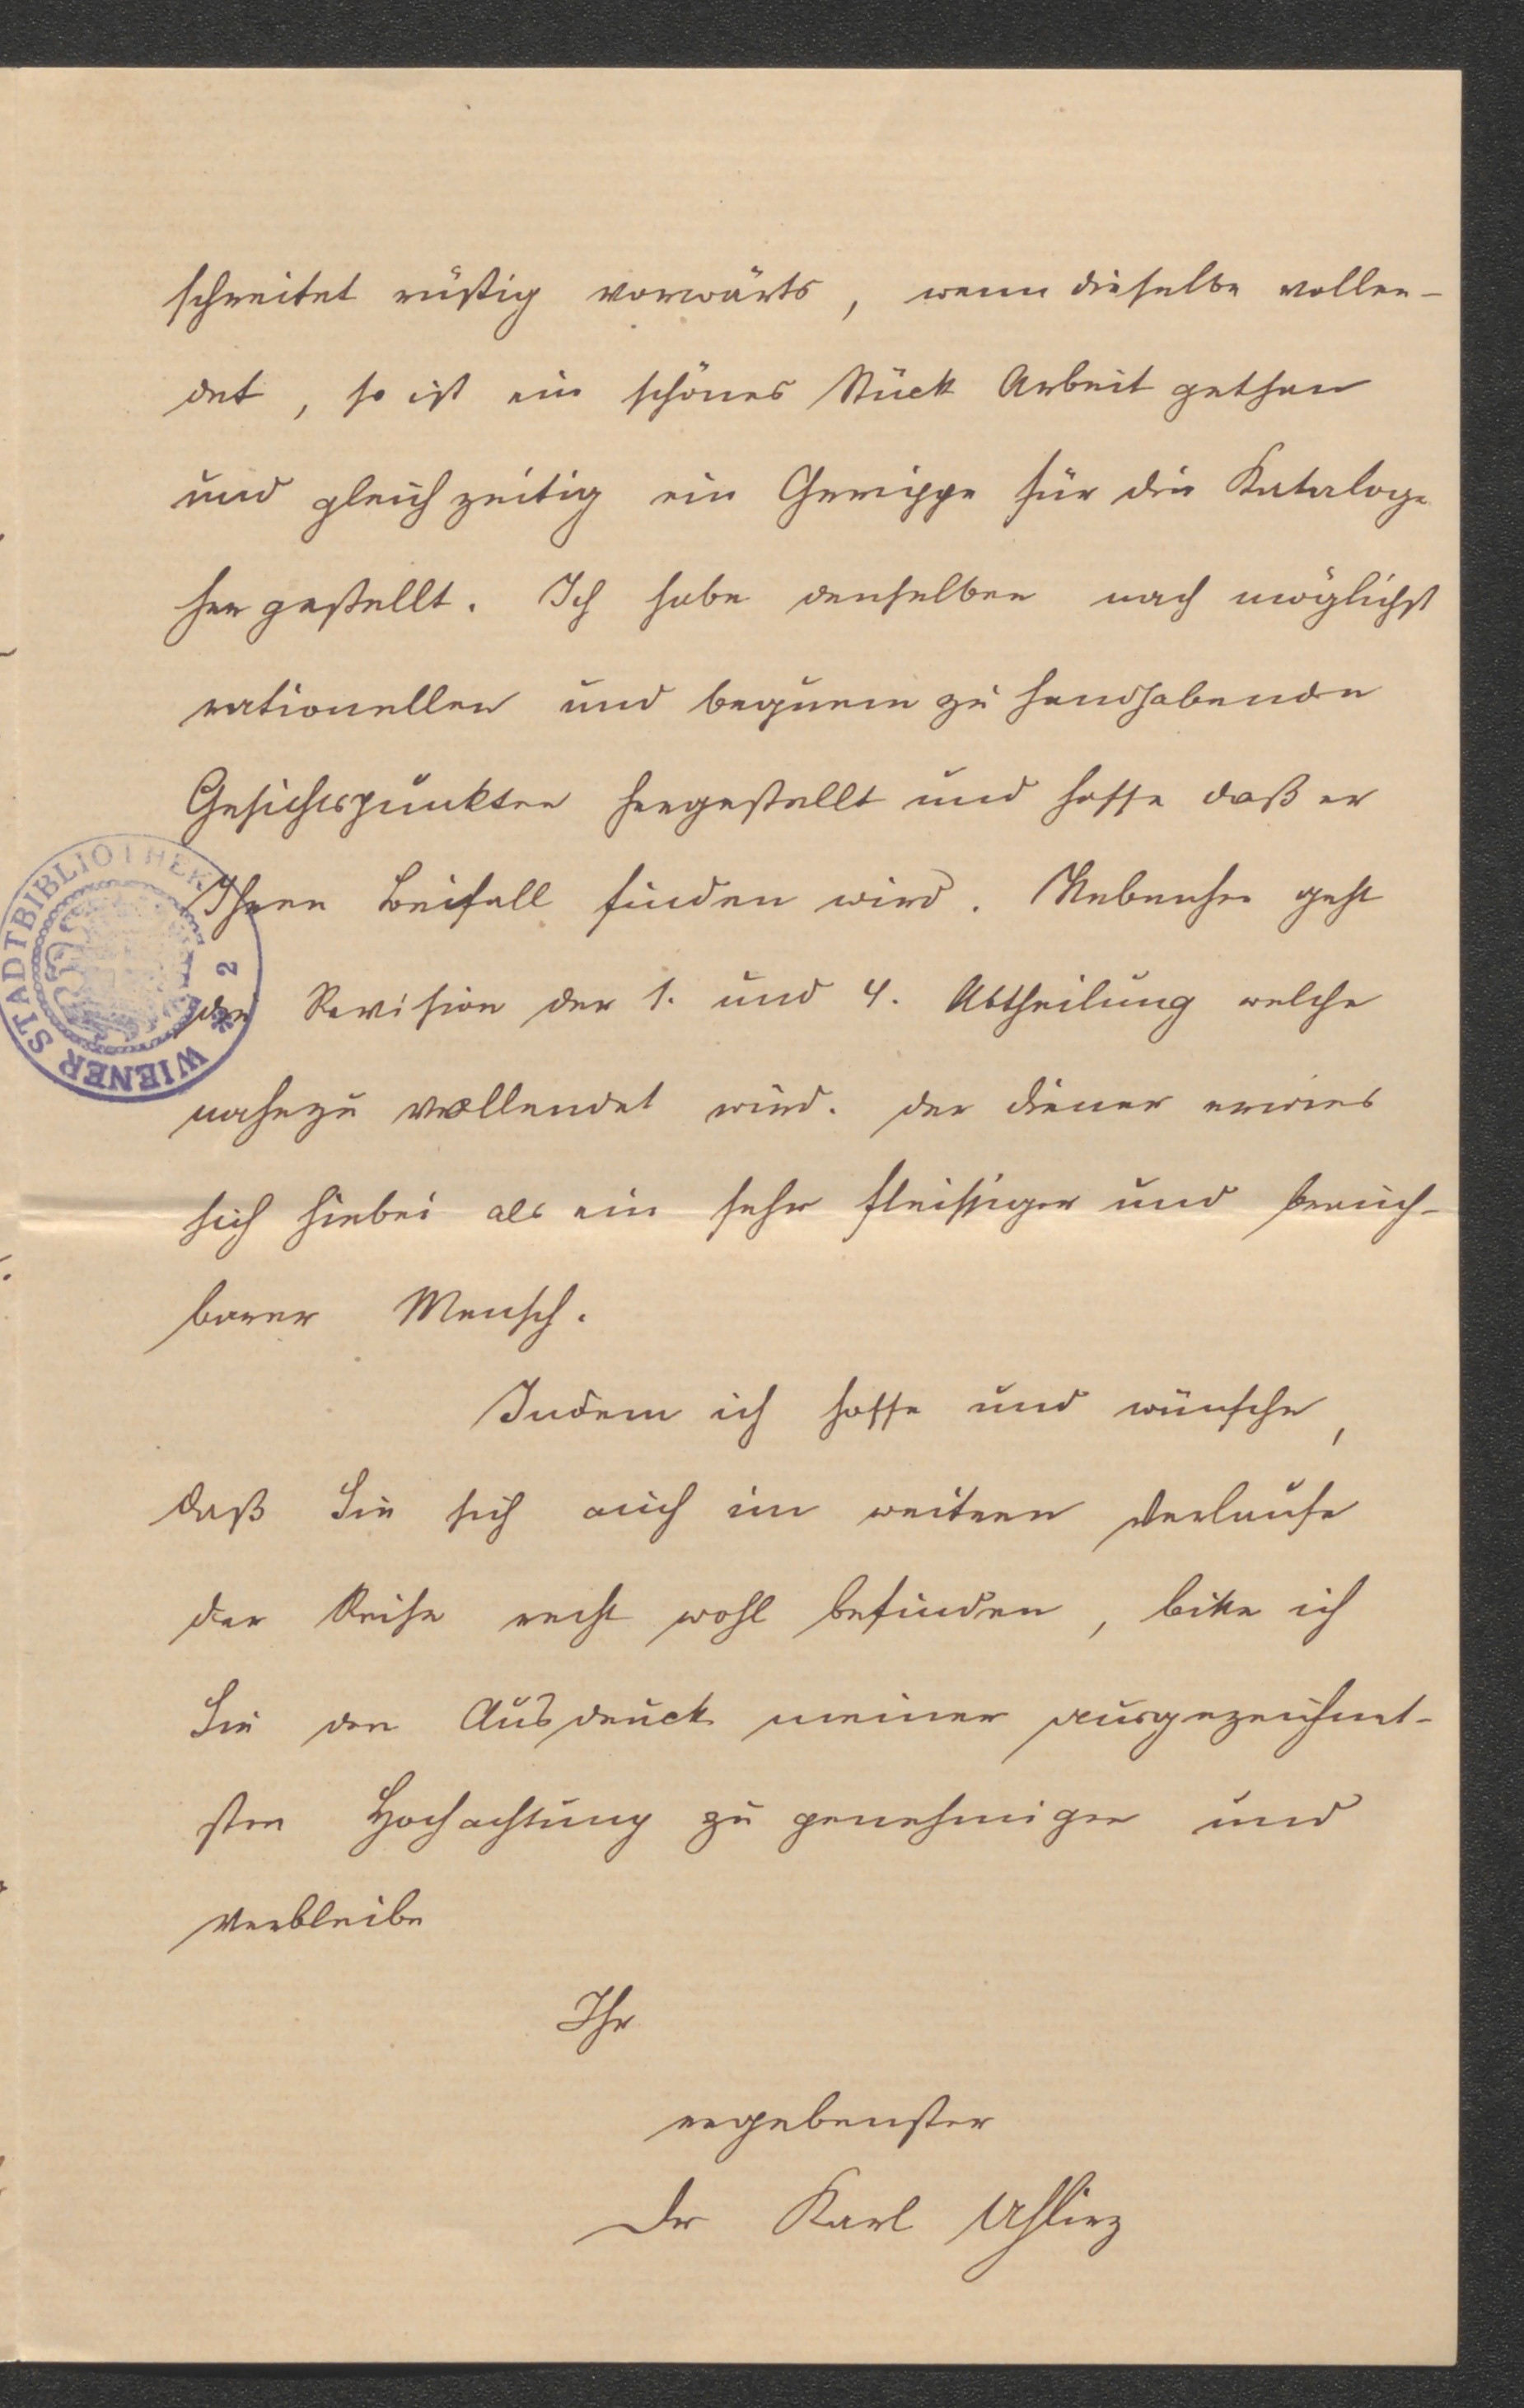 schreitet rüstig vorwärts, wenn dieselbe vollen-
det, so ist ein schönes Stück Arbeit gethan
und gleichzeitig ein Gerippe für die Kataloge
hergestellt. Ich habe denselben nach möglichst
rationellen und bequem zu handhabende
Gesichtspunkten hergestellt und hoffe daß er
Ihren Beifall finden wird. Nebenher geht
die Revision der 1. und 4. Abtheilung welche
nahezu vollendet wird. der Diener erwies
sich hiebei als ein sehr fleissiger und brauch-
barer Mensch.
Indem ich hoffe und wünsche,
daß Sie sich auch im weitern Verlaufe
der Reise recht wohl befinden, bitte ich
Sie den Ausdruck meiner ausgezeichnet-
sten Hochachtung zu genehmigen und
verbleibe
Ihr
ergebenster
Dr Karl Uhlirz
WIENER STADTBIBLIOTHEK * 2